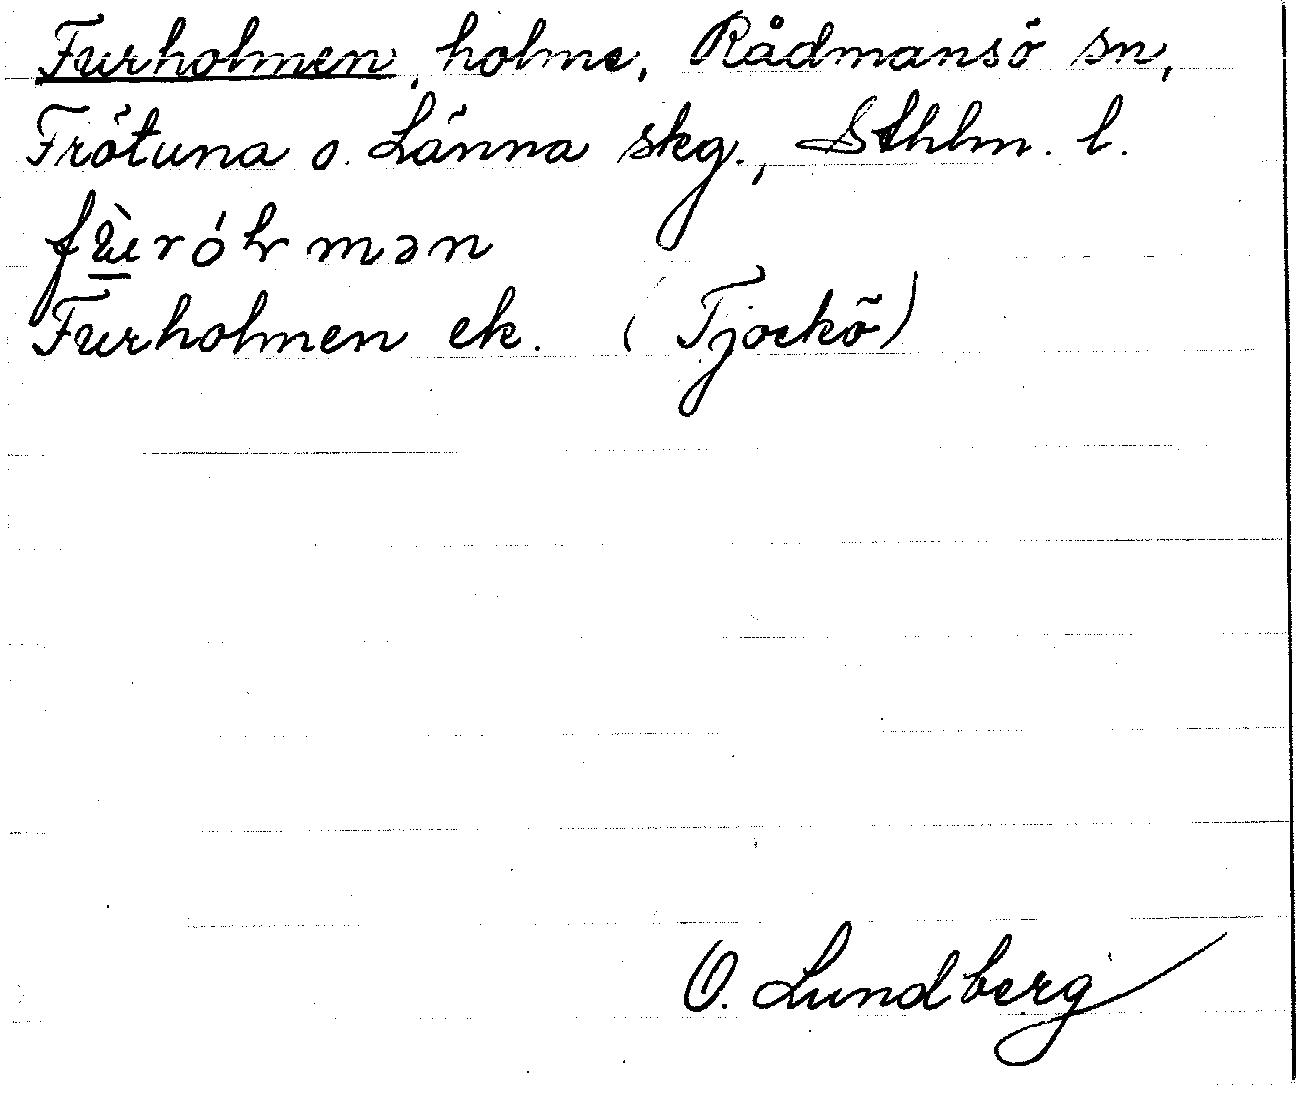 Furholmen, holme, Rådmansö sn,
Frötuna o. Länna skg., Sthlm. l.
Furholmen ek. (Tjockö)
O. Lundberg